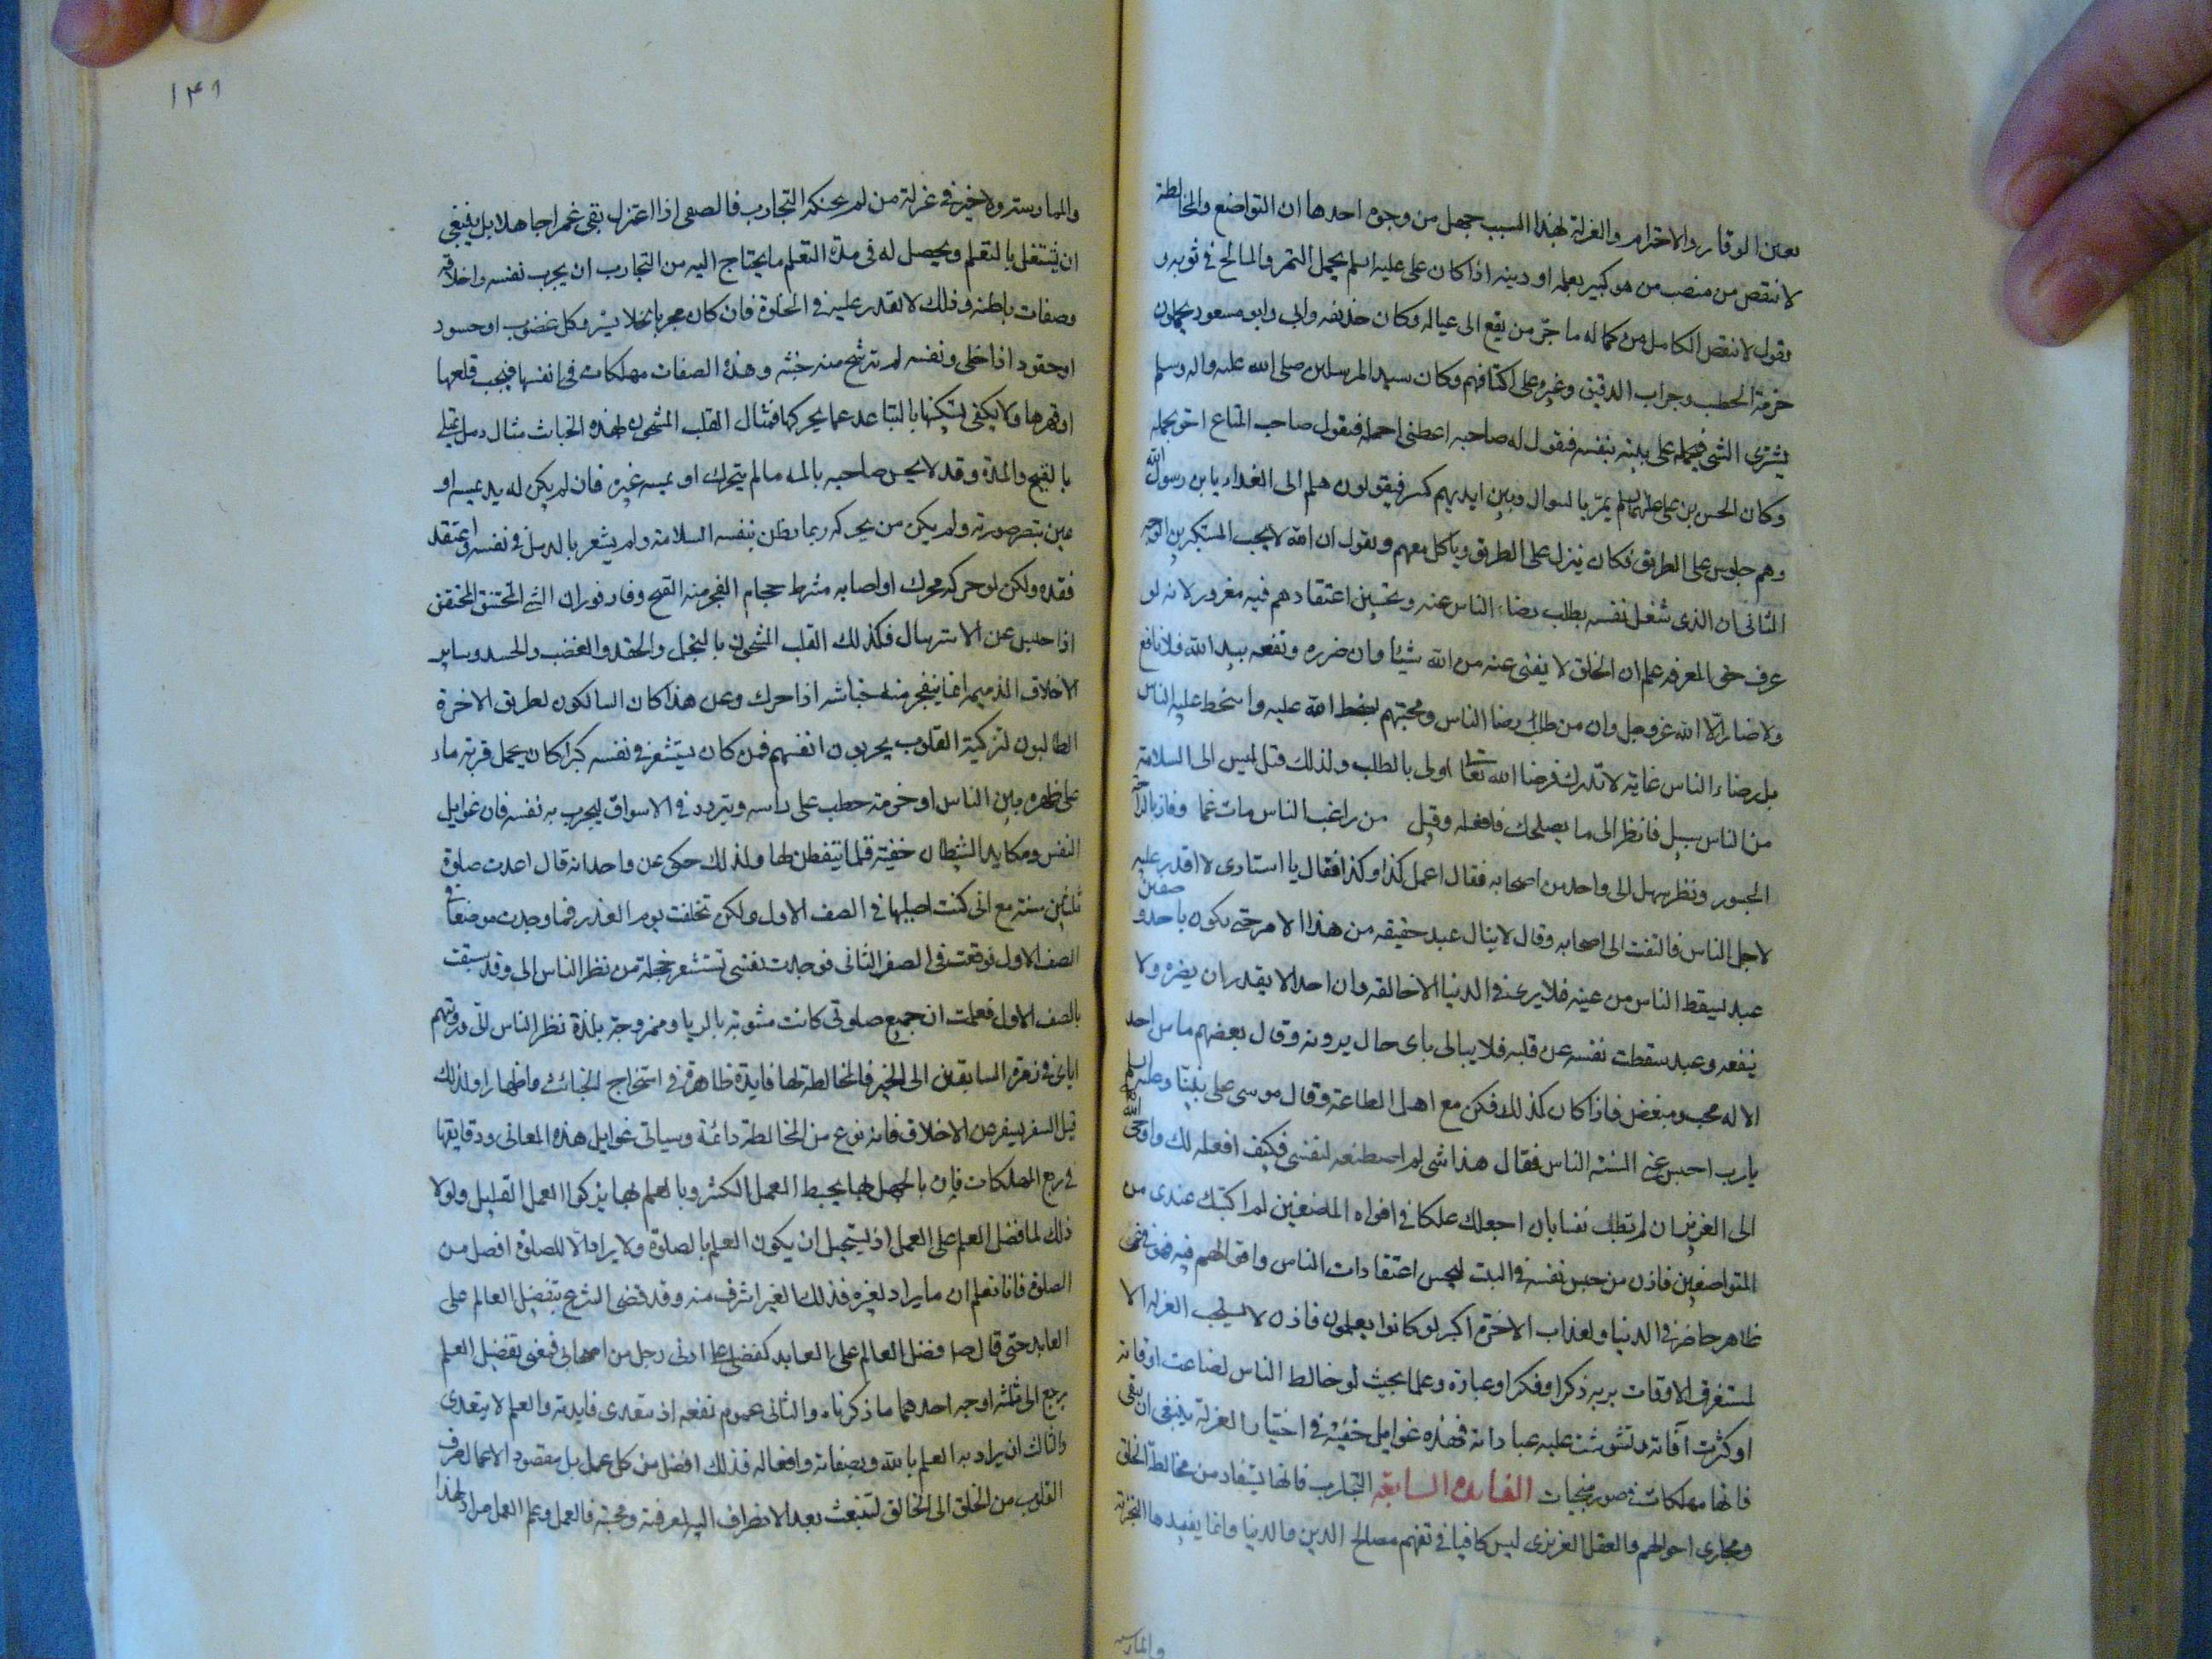 بعين الوقار والاحترام والعزلة بهذا السبب جهل من وجوه احدها ان التواضع والمخالطة
لا تنقص من منصب من هو كبير بعلمه او دينه اذا كان على عليه السلم يحمل التمر والمالح في ثوبه و
يقول لا نقص الكامل من كماله ما جر من نفع الى عياله وكان حذيفه وابى وابو مسعود يحملون
حزمة الحطب وجراب الدقيق وغيره على اكتافهم وكان سيد المرسلين صلى الله عليه واله وسلم
يشترى الشئ فيحمله على بيته بنفسه فيقول له صاحبه اعطنى احمله فيقول صاحب المتاع احق بحمله
وكان الحسن بن على عليهما السلم يمر بالسوال وبين ايديهم كسر فيقولون هلم الى الغداء يابن رسول الله
وهم جلوس على الطريق فكان ينزل على الطريق وياكل معهم ويقول ان الله لا يحب المستكبرين الوجه
الثانى ان الذى شغل نفسه بطلب رضاء الناس عنه وتحسين اعتقادهم فيه مغرور لانه لو
عرف حق المعرفه علم ان الخلق لا يغنى عنه من الله شيئا وان ضرره ونفعه بيد الله فلا نافع
ولا ضار الا الله عز وجل وان من طلب رضا الناس ومحبتهم بسخط الله عليه واسخط عليه الناس
بل رضاء الناس غاية لا تدرك فرضا الله تعالى اولى بالطلب ولذلك قيل ليس الى السلامة
من الناس سبيل فانظر الى ما يصلحك فافعله وقيل من راغب الناس مات غما وفاز بالراحة
الجسور ونظر سهل الى واحد من اصحابه فقال اعمل كذا وكذا فقال يا استادى لا اقدر عليه
لاجل الناس فالتفت الى اصحابه وقال لا ينال عبد حقيقه من هذا الامر حتى يكون باحد وصفين
عبد سقط الناس من عينه فلا يرى في الدنيا الا خالقه وان احدا لا يقدر ان يضره ولا
ينفعه وعبد سقطت نفسه عن قلبه فلا يبالى باى حال يرونه وقال بعضهم ما من احد
الا له محب ومبغض فاذا كان كذلك فكن مع اهل الطاعة وقال موسى على نبينا وعليه السلم
يا رب احبس عنى السنة الناس فقال هذا شى لم اصطنعه لنفسى فكيف افعله لك واوحى الله
الى العزيز ان لم تطب نفسا بان اجعلك علكا في افواه الماضغين لم اكتبك عندى من
المتواضعين فاذن من حبس نفسه في البيت ليحسن اعتقادات الناس واقوالهم فيه فهو في عناء
ظاهر حاضر في الدنيا ولعذاب الاخرة اكبر لو كانوا يعلمون فاذن لا يستحب العزلة الا
لمستغرق الاوقات بربه ذكرا وفكرا وعبادة وعلما بحيث لو خالط الناس لضاعت اوقاته
او كثرت آفاته ولتشوشت عليه عباداته فهذه غوايل خفية في اختيار العزلة ينبغى ان يتقى
فانها مهلكات في صور منجيات الفايدة السابعة التجارب فانها تستفاد من مخالطة الخلق
ومجارى احوالهم والعقل الغريزى ليس كافيا في تفهم مصالح الدين والدنيا وانما يفيدها التجربة
والممارسه
١٤١
والممارسة ولا خير في عزلة من لم يحنكه التجارب فالصبى اذا اعتزل بقى غمرا جاهلا بل ينبغى
ان يشتغل بالتعلم ويحصل له في مدة التعلم ما يحتاج اليه من التجارب ان يجرب نفسه واخلاقه
وصفات باطنه وذلك لا يقدر عليه في الخلوة فان كان مجرب الخلا يسر وكل غضوب او حسود
او حقود اذا خلى ونفسه لم يترشح منه خبثه وهذه الصفات مهلكات في انفسها فيجب قلعها
او قهرها ولا يكفى تسكينها بالتباعد عما يحركها فمثال القلب المشحون بهذه الخبائث مثال دمل ممتلى
بالقيح والمدة وقد لا يحس صاحبه بالمه ما لم يتحرك او يمسه غيره فان لم يكن له يد يمسه او
عين تبصر صورته ولم يكن من يحركه ربما يظن بنفسه السلامة ولم يشعر بالدمل في نفسه واعتقد
فقده ولكن لو حركه محرك او اصابه مشرط حجام انفجر منه القيح وفار فوران الشئ المختنق المحتقن
اذا حبس عن الاسترسال فكذلك القلب المشحون بالبخل والحقد والغضب والحسد وساير
الاخلاق الذميمه انما ينفجر منه خبائثه اذا حرك وعن هذا كان السالكون لطريق الاخرة
الطالبون لتزكية القلوب يجربون انفسهم فمن كان يستشعر في نفسه كبرا كان يحمل قربة ماء
على ظهره بين الناس او حزمة حطب على راسه ويتردد في الاسواق ليجرب به نفسه فان غوايل
النفس ومكايد الشيطان خفية قلما يتفطن لها ولذلك حكى عن واحد انه قال اعدت صلوة
ثلثين سنة مع انى كنت اصليها في الصف الاول ولكن تخلفت يوما لعذر فما وجدت موضعا في
الصف الاول فوقفت في الصف الثانى فوجدت نفسى تستشعر خجلة من نظر الناس الى وقد سبقت
بالصف الاول فعلمت ان جميع صلوتى كانت مشوبة بالريا وممزوجة بلذة نظر الناس الى ورؤيتهم
اياى في زمرة السابقين الى الخير فالمخالطة لها فايدة ظاهرة في استخراج الخبائث واظهارها ولذلك
قيل السفر يسفر عن الاخلاق فانه نوع من المخالطة دائمة وسياتى غوايل هذه المعانى ودقايقها
في ربع المهلكات فان بالجهل بها يحبط العمل الكثير وبالعلم بها يزكوا العمل القليل ولولا
ذلك لما فضل العلم على العمل اذ يستحيل ان يكون العلم بالصلوة ولا يراد الا للصلوة افضل من
الصلوة فانا نعلم ان ما يراد لغيره فذلك الغير اشرف منه وقد قضى الشرع بتفضيل العالم على
العابد حتى قال ص فضل العالم على العابد كفضلى على ادنى رجل من اصحابى فمعنى تفضيل العلم
يرجع الى ثلثه اوجه احدهما ما ذكرناه والثانى عموم نفعه اذ يتعدى فايدته والعلم لا يتعدى
والثالث ان يراد به العلم بالله وبصفاته وافعاله فذلك افضل من كل عمل بل مقصود الاعمال صرف
القلوب من الخلق الى الخالق لتنبعث بعد الانصراف اليه لمعرفته ومحبته فالعمل وعلم العمل مراد لهذا